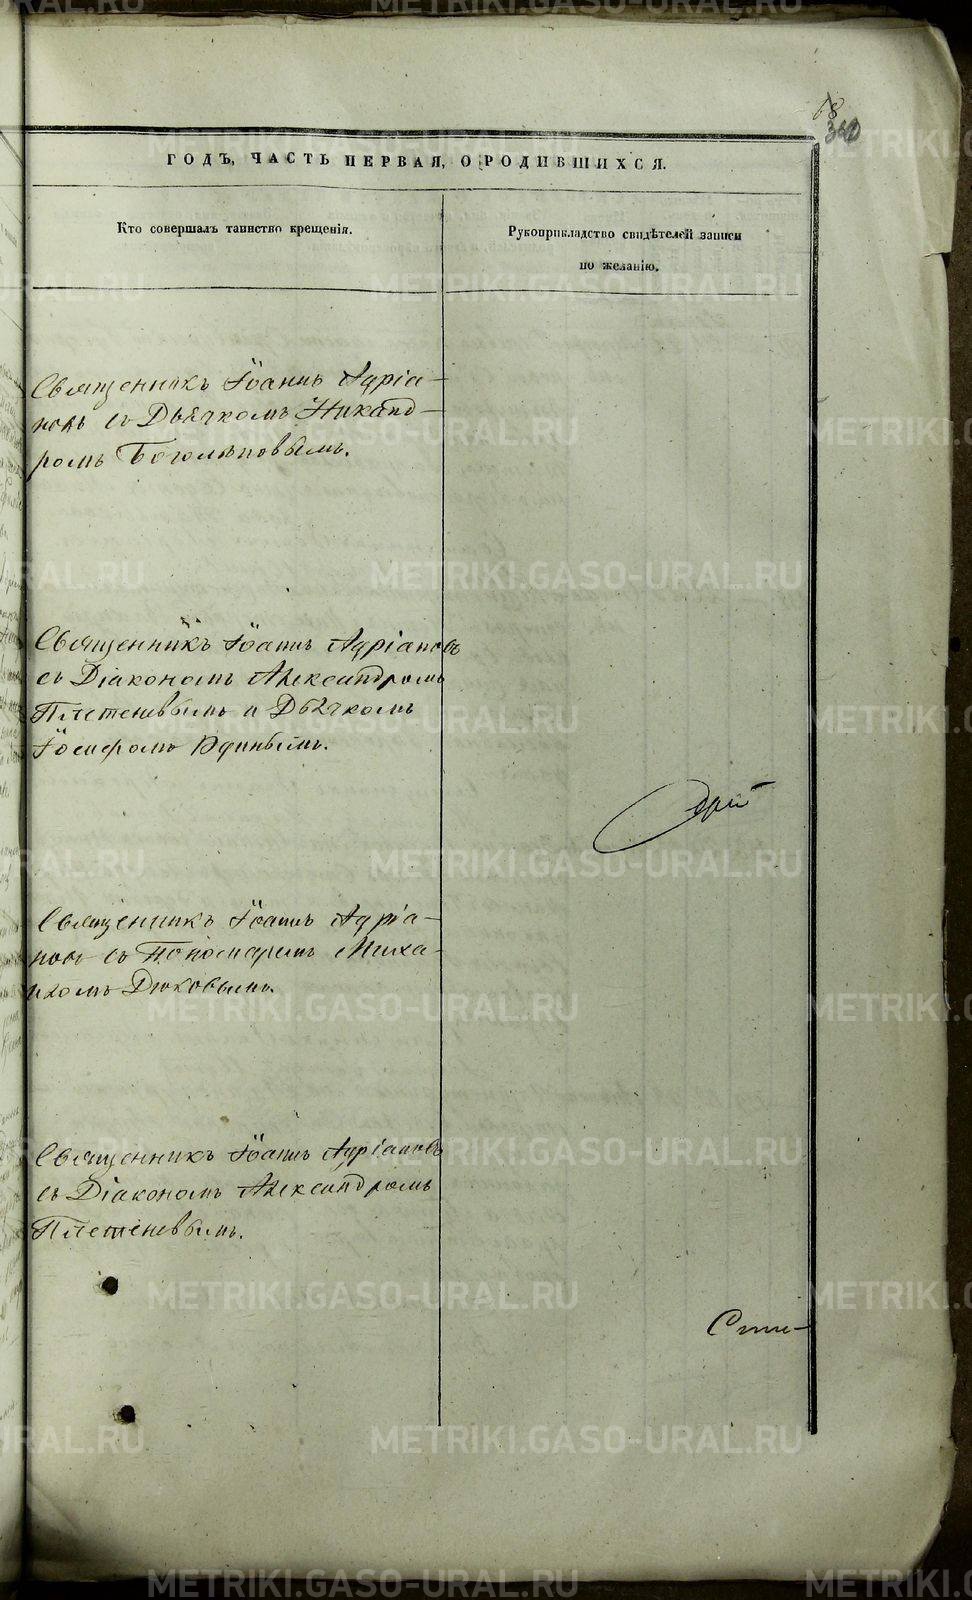 68
360
ГОДЪ, ЧАСТЬ ПЕРВАЯ, О РОДИВШИХСЯ.
Кто совершалъ таинство крещенія.
Рукоприкладство свидѣтелей записи
по желанію.
Священникъ Іоаннъ Адріа-
новъ съ Дьячкомъ Никанд-
ромъ Боголѣповымъ.
Священникъ Іоаннъ Адріановъ
съ Діакономъ Александромъ
Плетеневымъ и Дьячкомъ
Іосифомъ
Священникъ Іоаннъ Адріа-
новъ съ Пономаремъ Миха-
иломъ Дюковымъ.
Священникъ Іоаннъ Адріановъ
съ Діакономъ Александромъ
Плетеневымъ.
METRIKI.GASO-URAL.RU